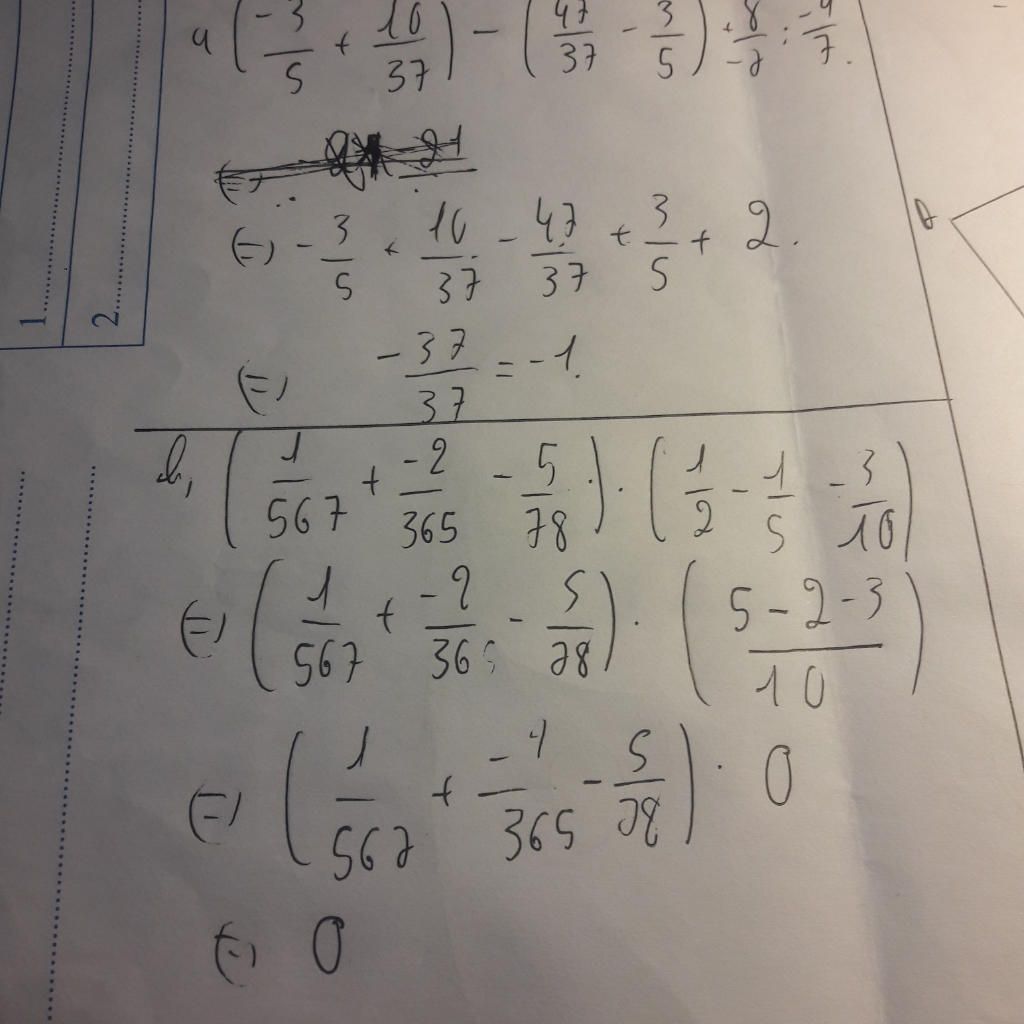 a (-3/5 + 10/37) - (47/37 - 3/5) + 8/-7 : -4/7.
(=) -3/5 + 10/37 - 47/37 + 3/5 + 2.
(=) -37/37 = -1.
b, (1/567 + -2/365 - 5/78) . (1/2 - 1/5 - 3/10)
(=) (1/567 + -2/365 - 5/78) . (5-2-3/10)
(=) (1/567 + -4/365 - 5/78) . 0
(=) 0
1..........
2..........